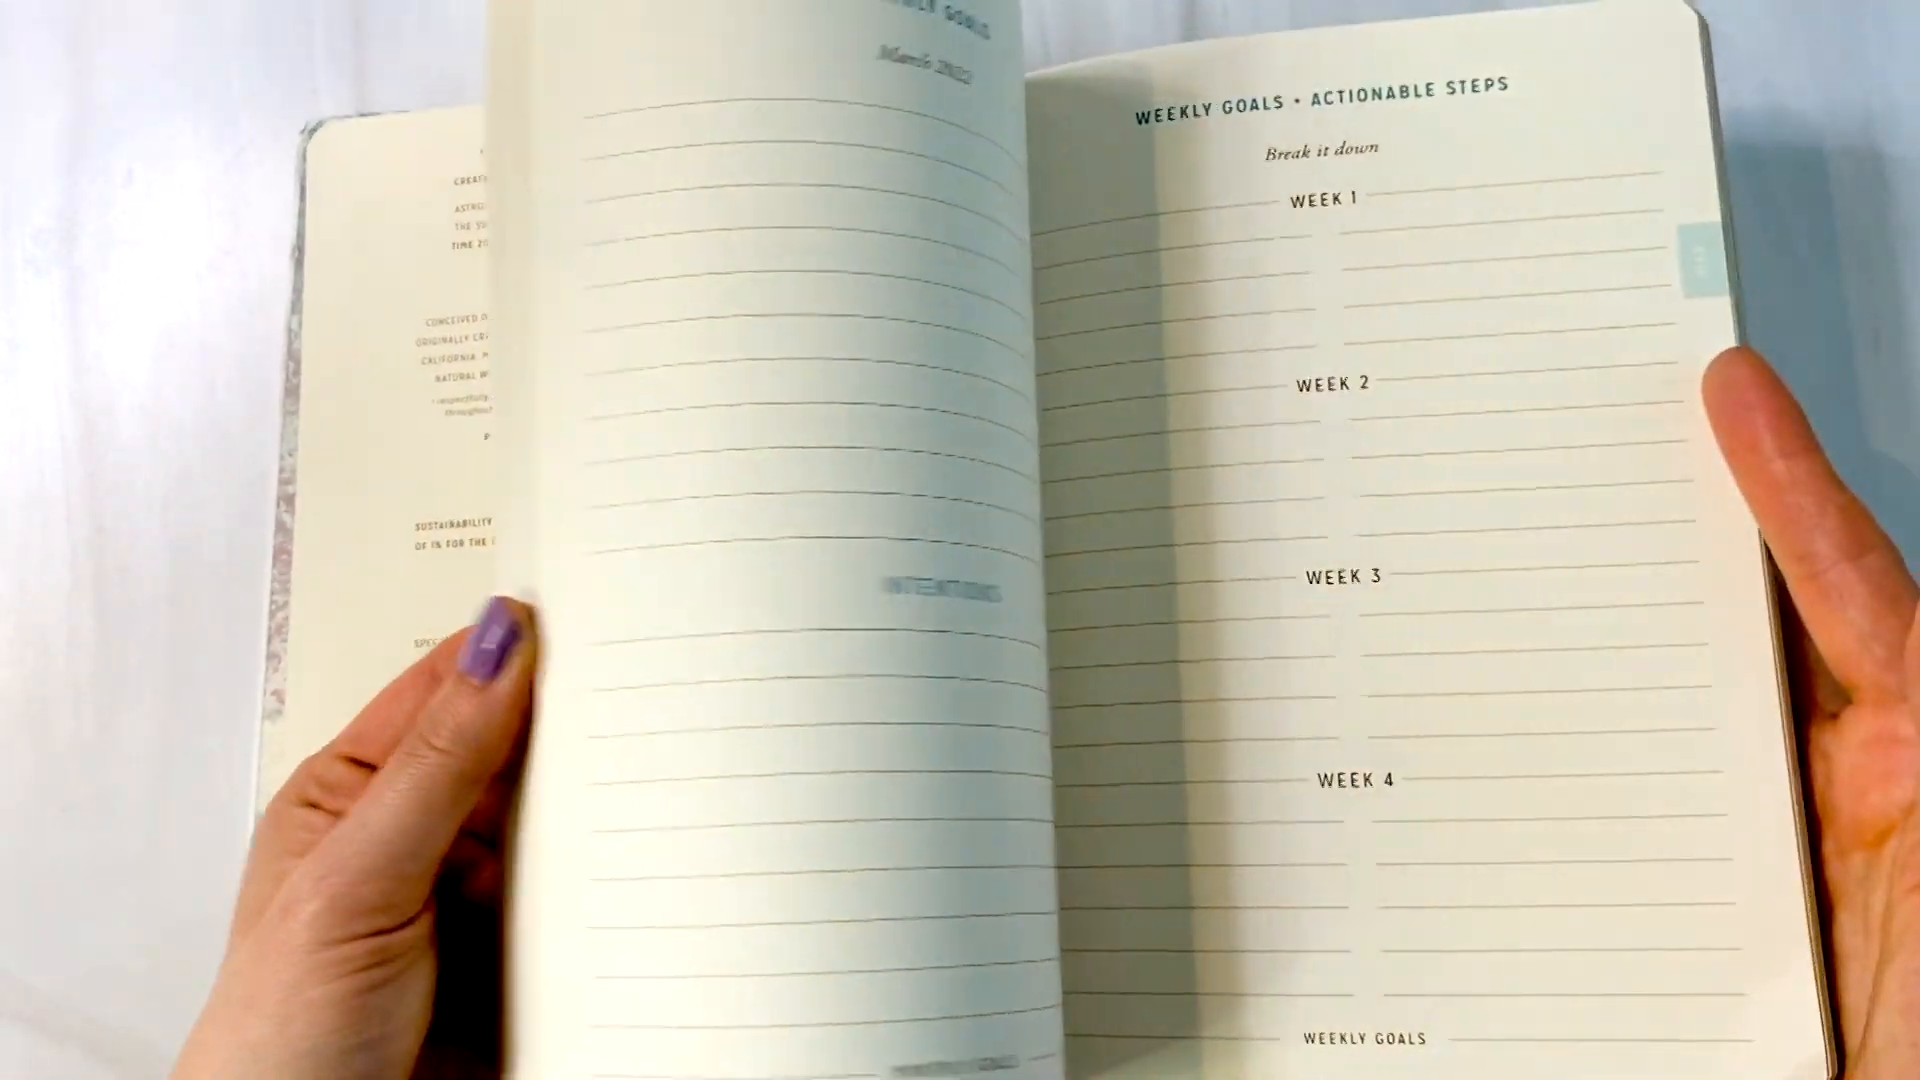 CREAT
ASTRO
THE SU
TIME 20
CONCEIVED O
ORIGINALLY CR
CALIFORNIA
NATURAL W
respectfully
throughout
P
SUSTAINABILITY
OF 1% FOR THE
SPEC
GOALS
March 2022
INTENTIONS
WEEKLY GOALS • ACTIONABLE STEPS
Break it down
WEEK 1
WEEK 2
WEEK 3
WEEK 4
WEEKLY GOALS